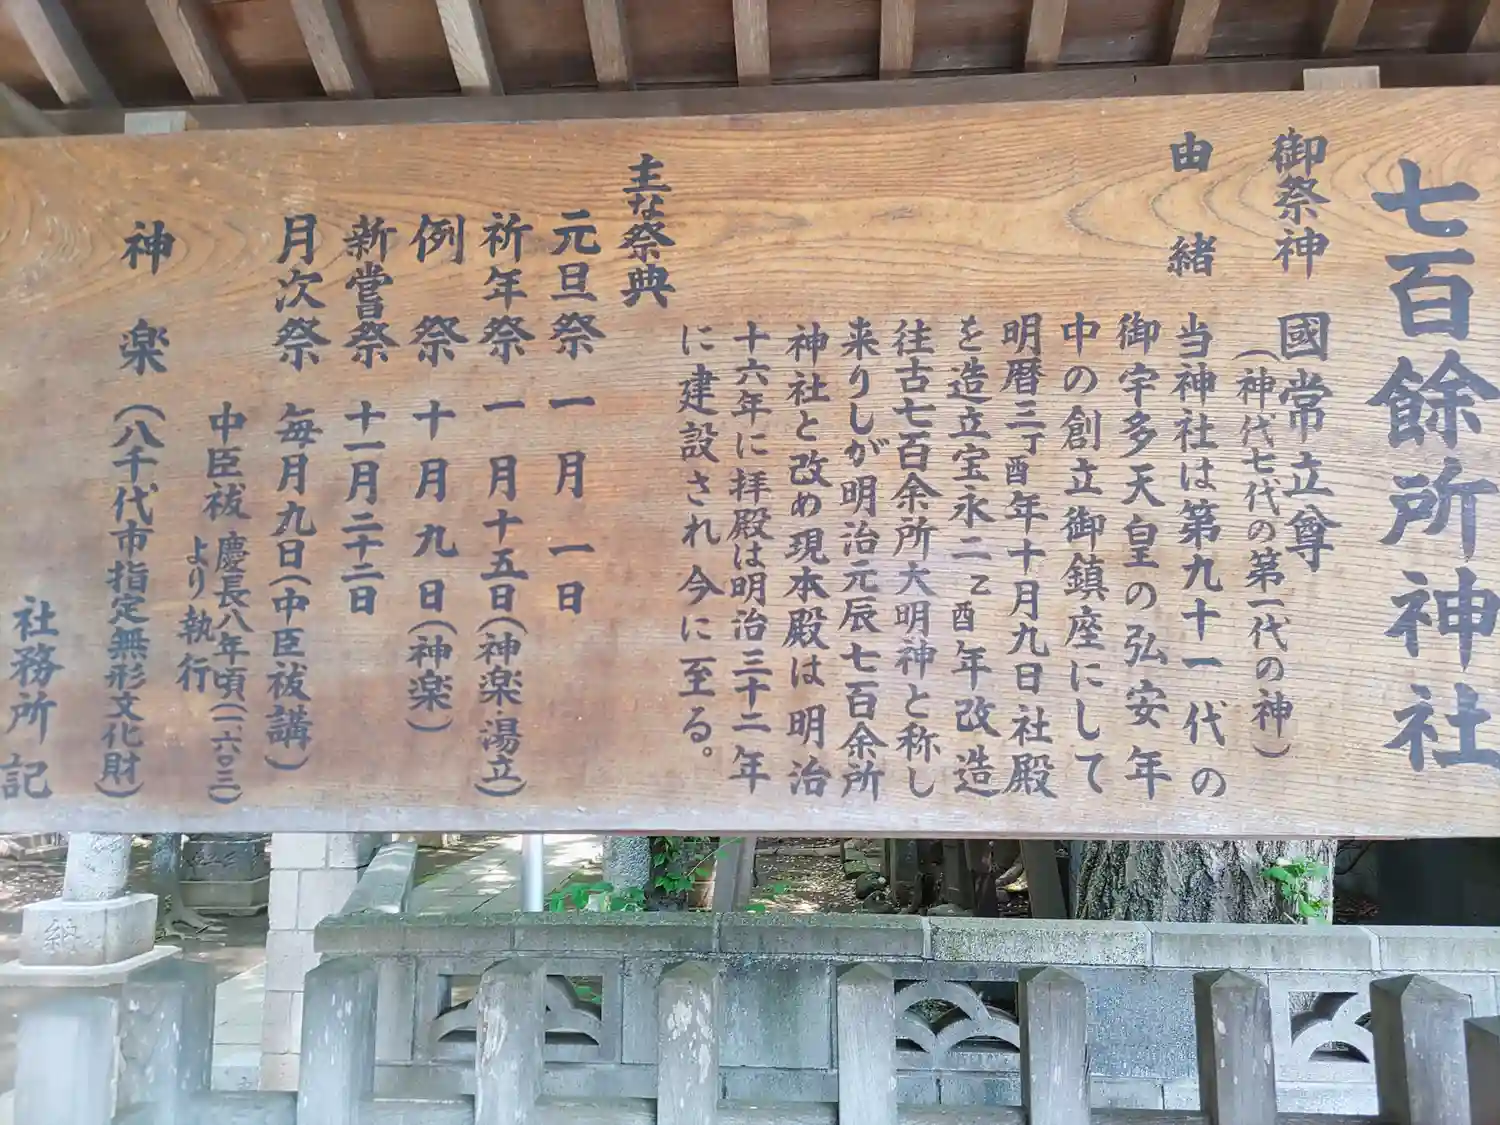 七百餘所神社
御祭神 國常立尊
(神代七代の第一代の神)
由緒 当神社は第九十一代の
御宇多天皇の弘安年
中の創立御鎮座にして
明暦三丁酉年十月九日社殿
を造立宝永二乙酉年改造
往古七百余所大明神と称し
来りしが明治元辰七百余所
神社と改め現本殿は明治
十六年に拝殿は明治三十二年
に建設され今に至る。
主な祭典
元旦祭 一月一日
祈年祭 一月十五日(神楽・湯立)
例祭 十月九日(神楽)
新嘗祭 十一月二十二日
月次祭 毎月九日(中臣祓講)
中臣祓 慶長八年頃(一六〇三)
より執行
神楽 (八千代市指定無形文化財)
社務所記
納